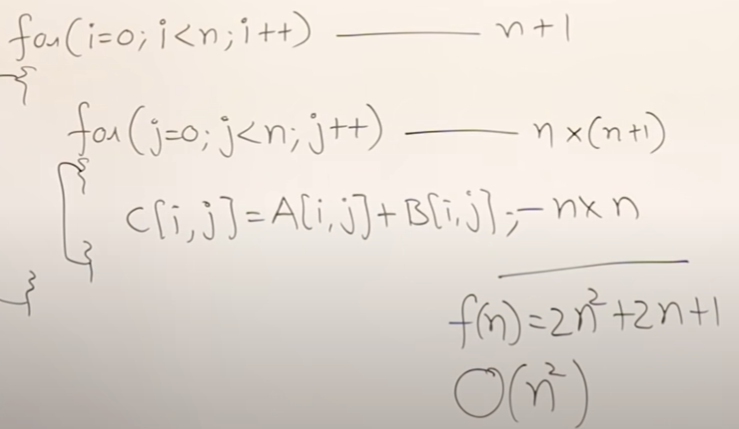 for(i=0; i<n; i++) ——— n+1
{
for(j=0; j<n; j++) ——— n×(n+1)
{
C[i,j]=A[i,j]+B[i,j]; — n×n
}
}
f(n)=2n²+2n+1
O(n²)